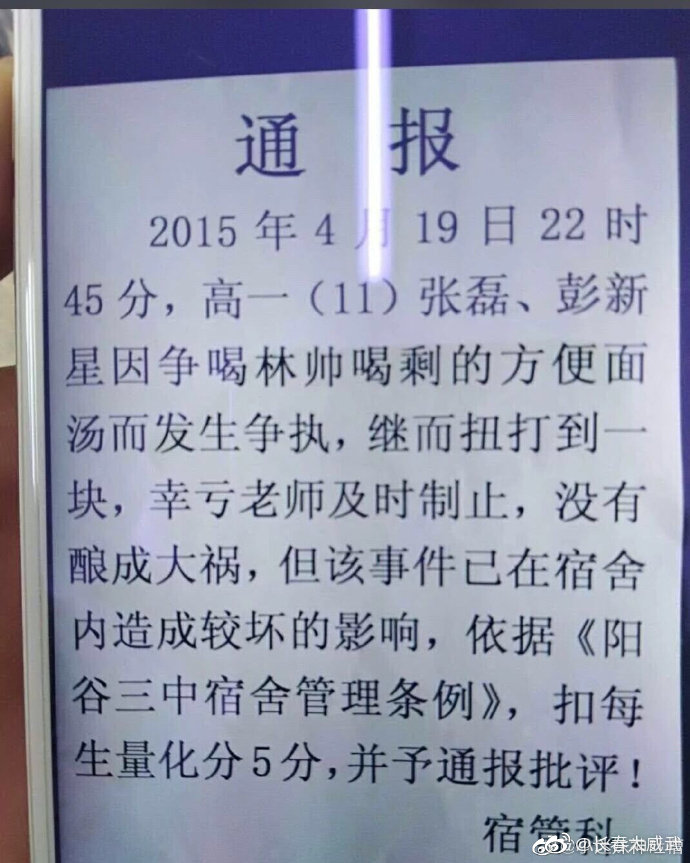 通 报
2015年4月19日22时
45分，高一（11）张磊、彭新
星因争喝林帅喝剩的方便面
汤而发生争执，继而扭打到一
块，幸亏老师及时制止，没有
酿成大祸，但该事件已在宿舍
内造成较坏的影响，依据《阳
谷三中宿舍管理条例》，扣每
生量化分5分，并予通报批评！
宿管科
@长春大威武